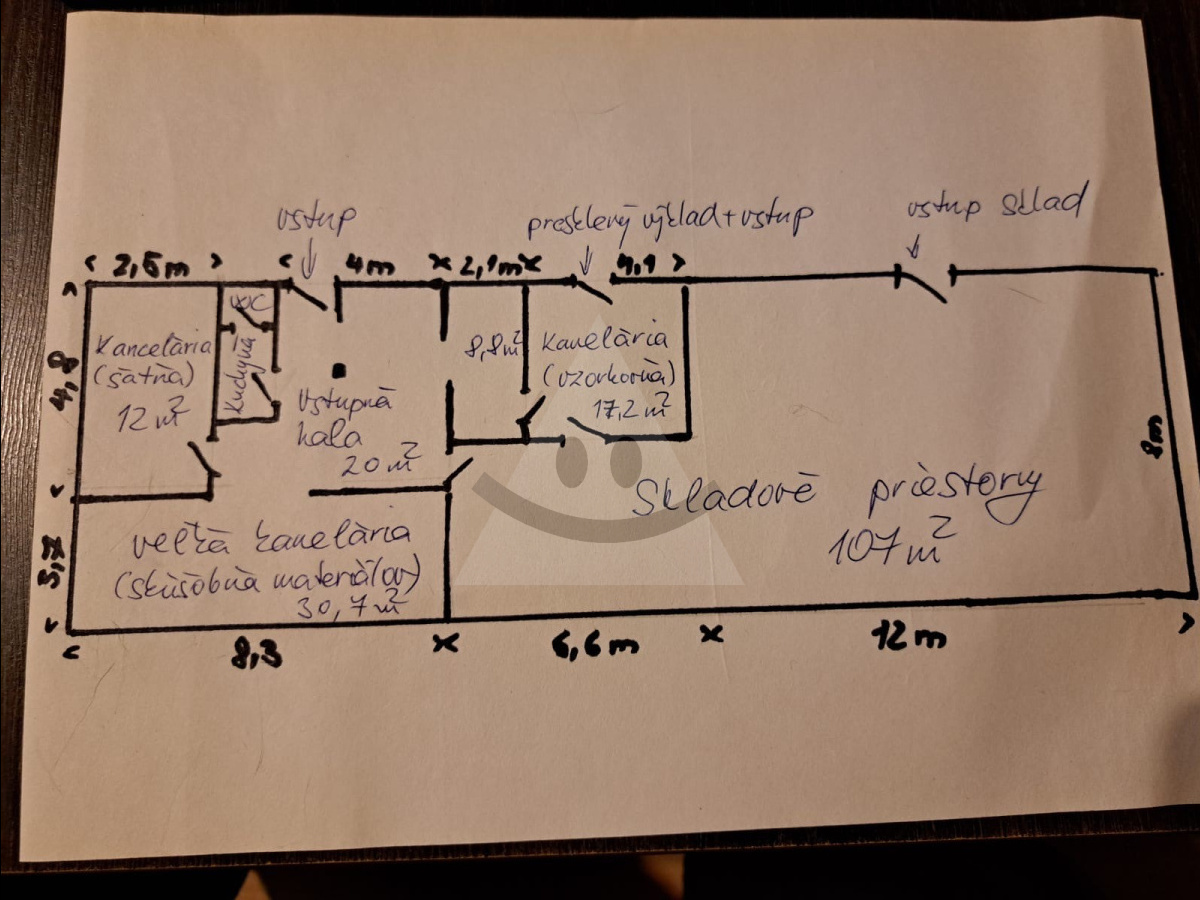 vstup
presklený výklad+vstup
vstup sklad
2,5m
4m
2,1m
4,1
WC
Kancelária
(šatňa)
12 m²
Kuchyňa
Vstupná
hala
20 m²
8,8m²
Kancelária
(vzorkovňa)
17,2 m²
4,8
8m
Skladové priestory
107 m²
3,7
veľká kancelária
(skúšobňa materiálov)
30,7 m²
8,3
6,6m
12m